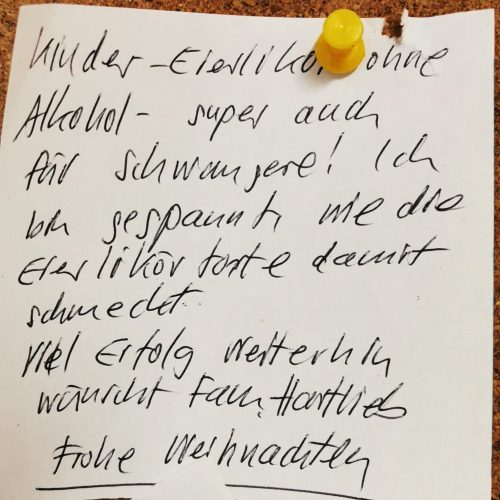 Kinder-Eierlikör ohne
Alkohol- super auch
für Schwangere! Ich
bin gespannt, wie die
Eierlikörtorte damit
schmeckt.
Viel Erfolg weiterhin
wünscht Fam. Hartlieb
Frohe Weihnachten